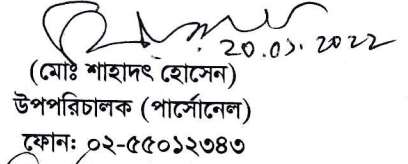 20.01.2022
(মোঃ শাহাদৎ হোসেন)
উপপরিচালক (পার্সোনেল)
ফোন: ০২-৫৫০১২৩৪৩